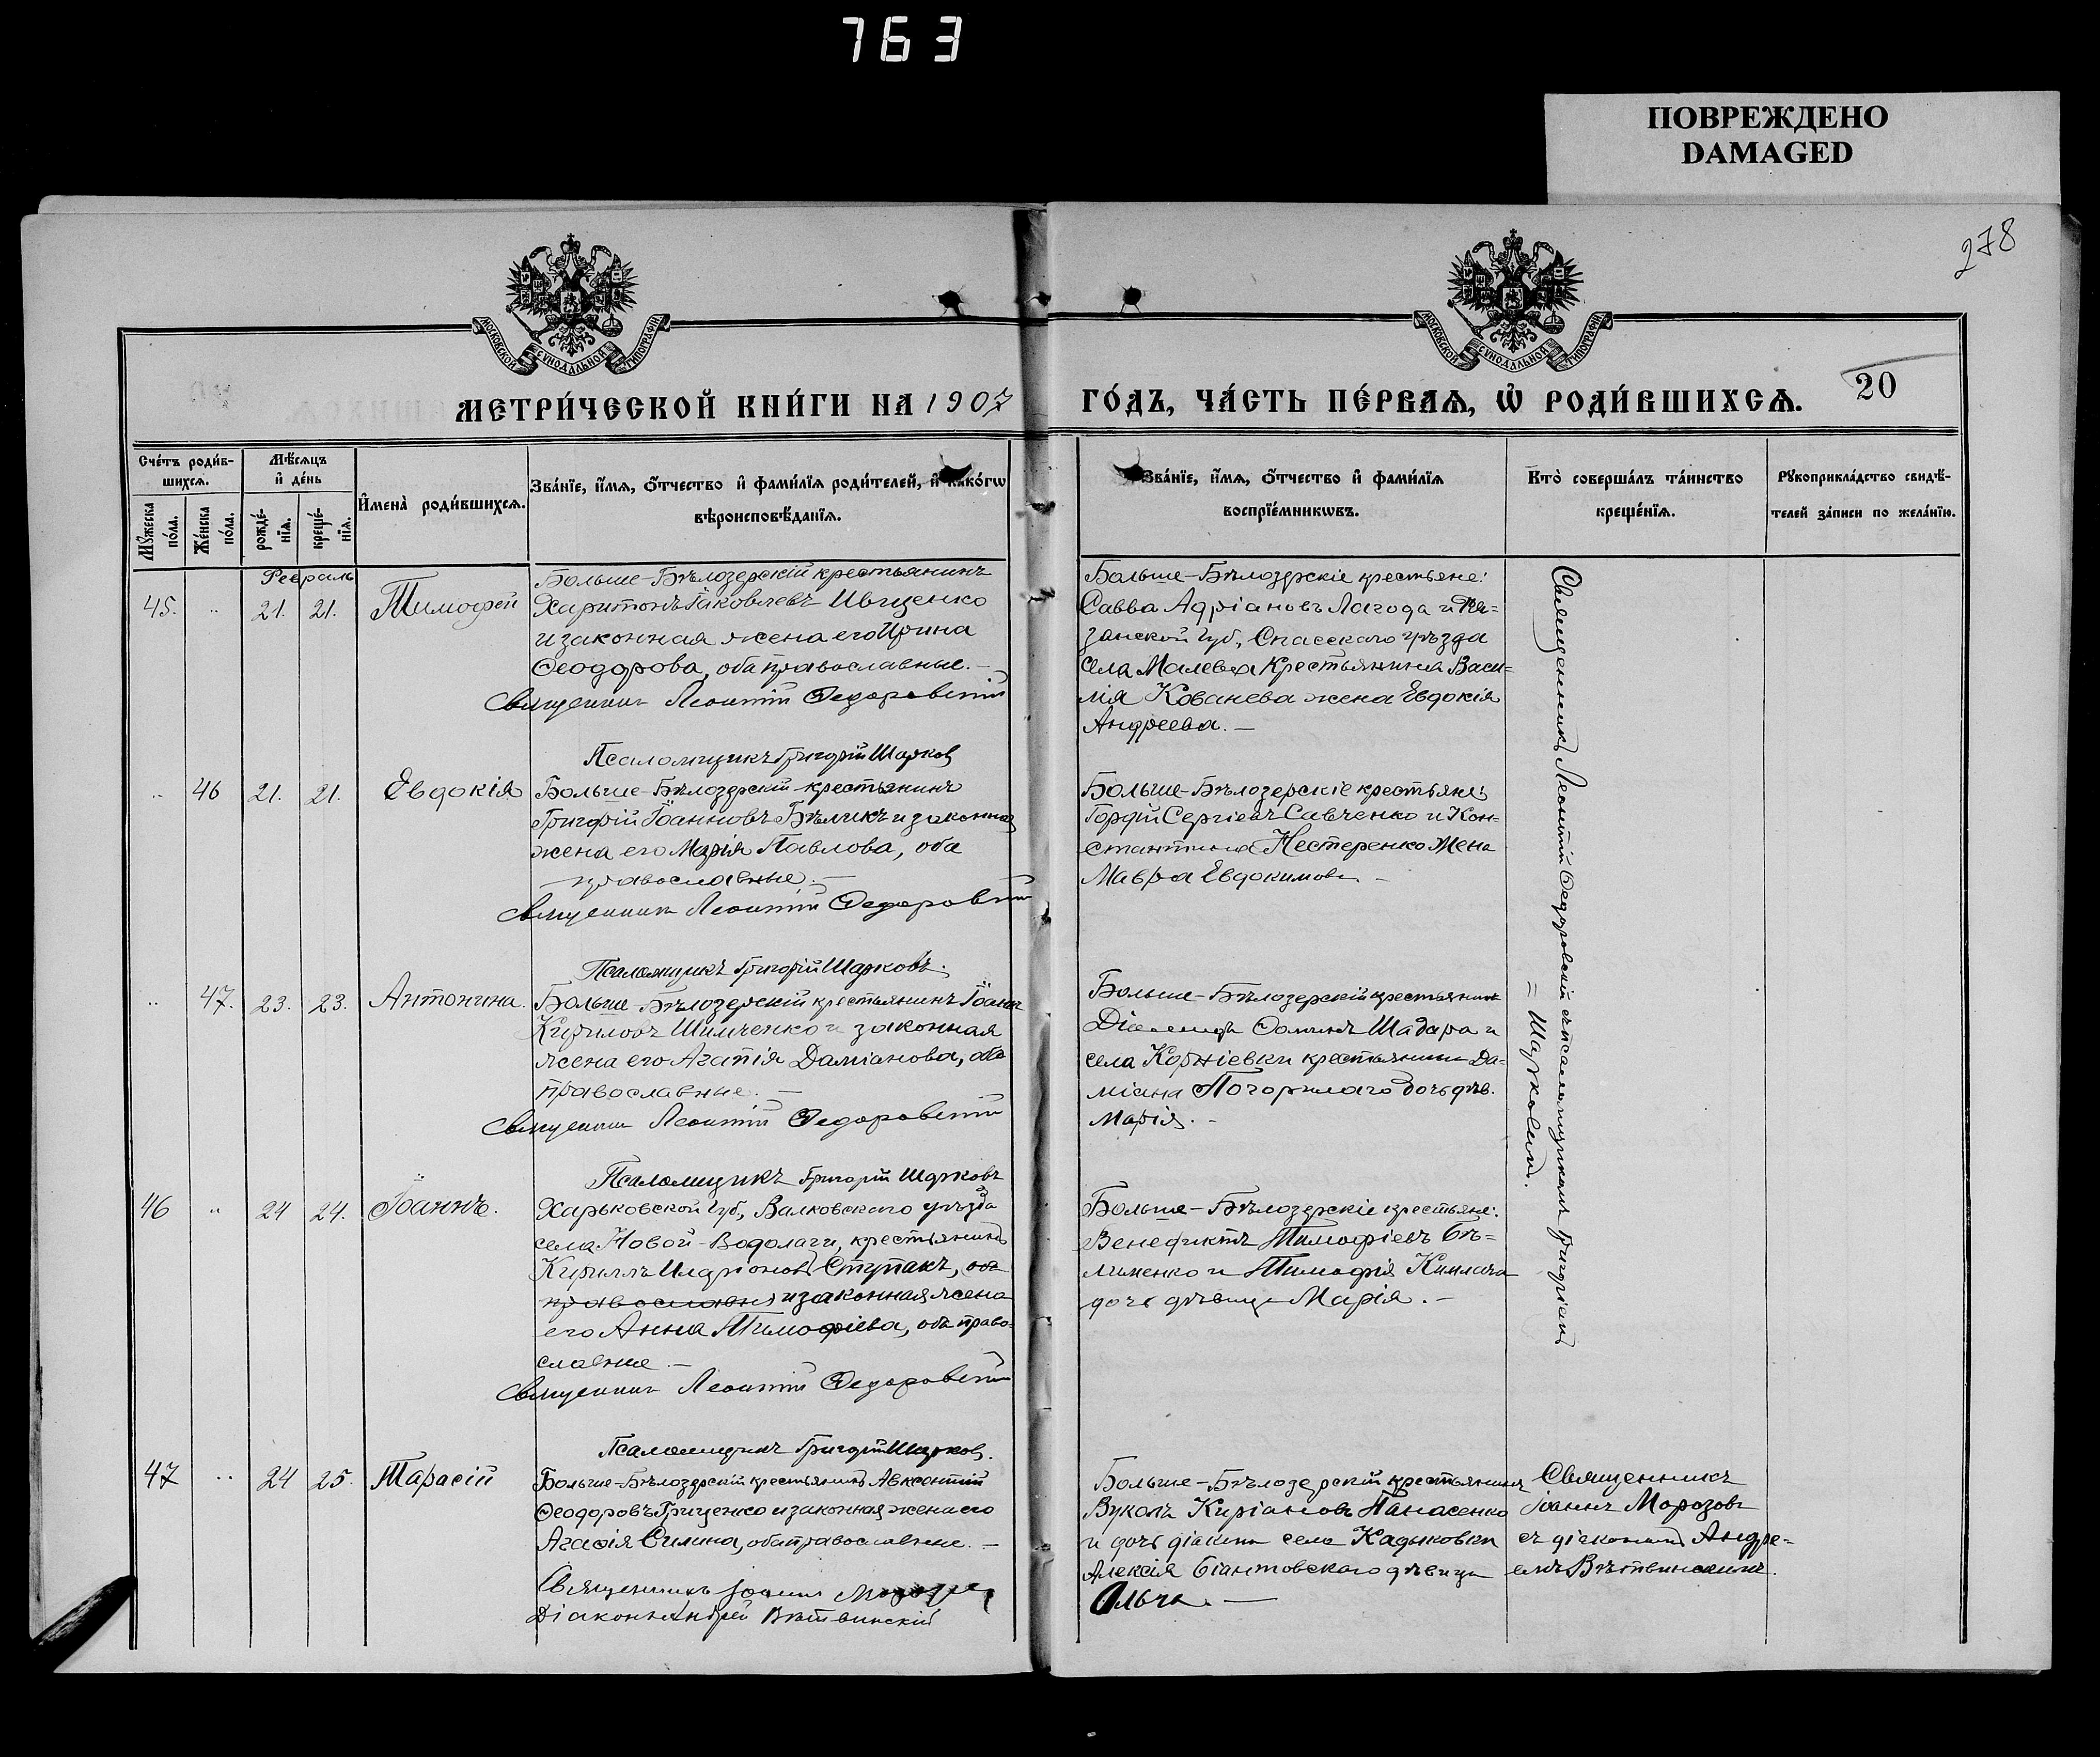 763
ПОВРЕЖДЕНО
DAMAGED
278
МОСКОВСКОЙ СѴНОДАЛЬНОЙ ТИПОГРАФІИ
МОСКОВСКОЙ СѴНОДАЛЬНОЙ ТИПОГРАФІИ
МЕТРИ́ЧЕСКОЙ КНИ́ГИ НА 1907
ГО́ДЪ, ЧА́СТЬ ПЕ́РВАѦ, Ѡ҆ РОДИ́ВШИХСѦ.
20
Сче́тъ роди́в-
шихсѧ.
Мѣ́сѧцъ
и҆ де́нь
Мꙋ́жеска
по́ла.
Же́нска
по́ла.
рожде́-
нїѧ.
креще́-
нїѧ.
И҆мена̀ роди́вшихсѧ.
Зва́нїе, и҆́мѧ, ѻ҆́тчество и҆ фами́лїѧ роди́телей, и҆ како́гѡ
вѣроисповѣ́данїѧ.
Зва́нїе, и҆́мѧ, ѻ҆́тчество и҆ фами́лїѧ
воспрїе́мникѡвъ.
Кто̀ соверша́лъ та́инство
креще́нїѧ.
Рꙋкоприкла́дство свидѣ́-
телей за́писи по жела́нїю.
Февраль
45. „ 21. 21. Тимофей
Больше-Бѣлозерскій крестьянинъ
Харитонъ Іаковлевъ Ивщенко
и законная жена его Ирина
Ѳеодорова, оба православные. —
Священникъ Леонтій Федоровскій
Псаломщикъ Григорій Шарков
Больше-Бѣлозерскіе крестьяне:
Савва Адріановъ Лагода и Ка=
занской губ., Спасскаго уѣзда
села Малевка крестьянина Васи=
лія Кованева жена Евдокія
Андреева. —
„ 46 21. 21. Евдокія
Больше-Бѣлозерскій крестьянинъ
Григорій Іоанновъ Бѣликъ и законная
жена его Марія Павлова, оба
православные. —
Священникъ Леонтій Федоровскій
Псаломщикъ Григорій Шарковъ.
Больше-Бѣлозерскіе крестьяне:
Гордій Сергіевъ Савченко и Кон=
стантина Нестеренко жена
Мавра Евдокимова. —
„ 47. 23. 23. Антонина.
Больше-Бѣлозерскій крестьянинъ Іоаннъ
Кириловъ Шимченко и законная
жена его Агапія Даміанова, оба
православные. —
Священникъ Леонтій Федоровскій
Псаломщикъ Григорій Шарковъ
Больше-Бѣлозерскій крестьянинъ
Ѳоминъ Шадара и
села Корніевки крестьянина Да=
міана Погорилаго дочь дѣв.
Марія. —
46 „ 24 24. Іоаннъ.
Харьковской губ., Валковского уѣзда
села Новой-Водолаги, крестьянинъ
Кириллъ Иларіоновъ Ступакъ, оба
православныя и законная жена
его Анна Тимофіева, оба право-
славные. —
Священникъ Леонтій Федоровскій
Псаломщикъ Григорій Шарков.
Больше-Бѣлозерскіе крестьяне:
Венедиктъ Тимофіевъ Бѣ=
лименко и Тимофія Кимлача
дочь дѣвица Марія. —
Священникъ Леонтій Федоровскій с псаломщикомъ Григоріемъ
= Шарковым.
47 „ 24 25. Тарасій
Больше-Бѣлозерскій крестьянинъ Авксентій
Ѳеодоровъ Гриценко и законная жена его
Агафія Силина, оба православные. —
Священникъ Іоаннъ Морозов
Діаконъ Андрей Вѣтвинскій
Больше-Бѣлозерскій крестьянинъ
Вуколъ Киріановъ Панасенко
и дочь діакона села Кадыковки
Алексія Біантовскаго дѣвица
Ольга. —
Священникъ
Іоаннъ Морозовъ
съ діакономъ Андре=
емъ Вѣтвинскимъ.